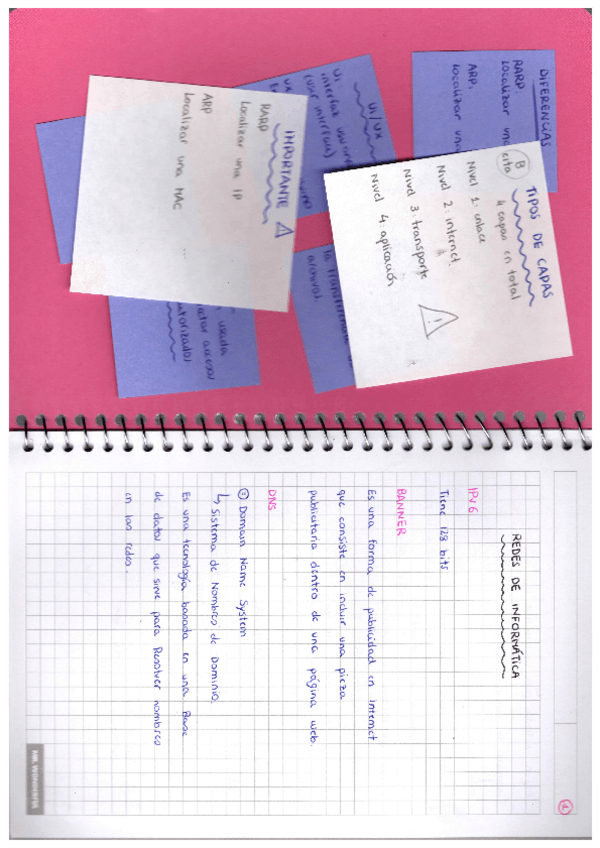 DIFERENCIAS
RARP.
Localizar una
ARP.
Localizar una
UI/UX
UI:
interfaz
(user interface)
TIPOS DE CAPAS
4 capas en total
B
Nivel 1: enlace
Nivel 2: internet.
Nivel 3: transporte
Nivel 4: aplicación
IMPORTANTE
RARP
Localizar una IP
ARP
Localizar una MAC
...
archivos.
usada
accesos
REDES DE INFORMÁTICA
IPv6
Tiene 128 bits
BANNER
Es una forma de publicidad en Internet
que consiste en incluir una pieza
publicitaria dentro de una página web.
DNS
Domain Name System
↳ Sistema de Nombres de Dominio.
Es una tecnología basada en una Base
de datos que sirve para Resolver nombres
en las redes.
MR. WONDERFUL